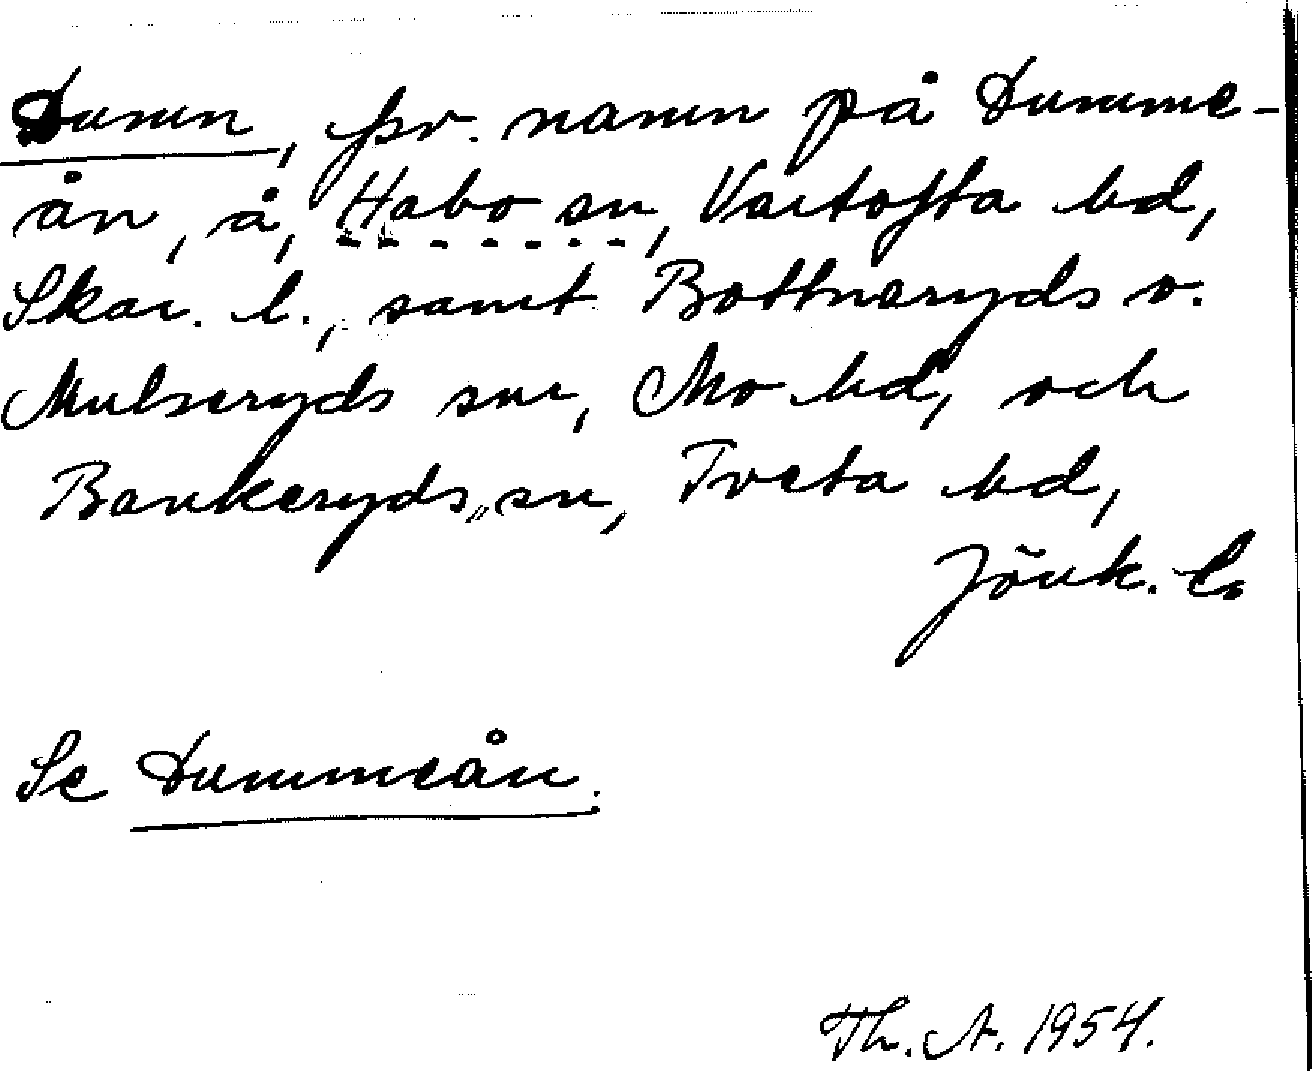 Dumn, fsv. namn på Dumme-
ån, å, Habo sn, Vartofta hd,
Skar. l., samt Bottnaryds o.
Mulseryds snr, Mo hd, och
Bankeryds sn, Tveta hd,
Jönk. l.
Se Dummeån.
Th. A. 1954.